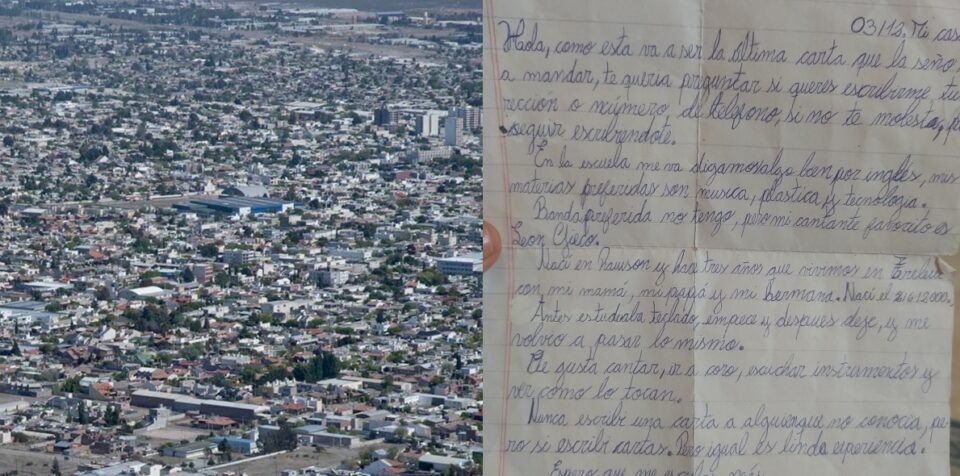 03/12. Mi cas
Hola, como esta va a ser la última carta que la seño,
a mandar, te queria preguntar si queres escribirme, tu
rección o número, de teléfono, si no te molesta, p
seguir escribrendote.
En la escuela me va digamosalgo bien por inglés, mis
materias preferidas son musica, plástica, y tecnología.
Banda preferida no tengo, pero mi cantante favorito es
Leon Gieco.
Naci en Rawson y hace tres años que vivimos en Trelew
con mi mamá, mi papá y mi hermana. Naci el 2000.
Antes estudiaba teclado, empece y despues deje, y me
volvio a pasar lo mismo.
Me gusta cantar, ir a coro, escuchar instrumentos y
ver como lo tocan.
Nunca escribi una carta a alguienque no conocia, pe
ro si escribi cartas. Pero igual es linda experiencia.
Espero que me